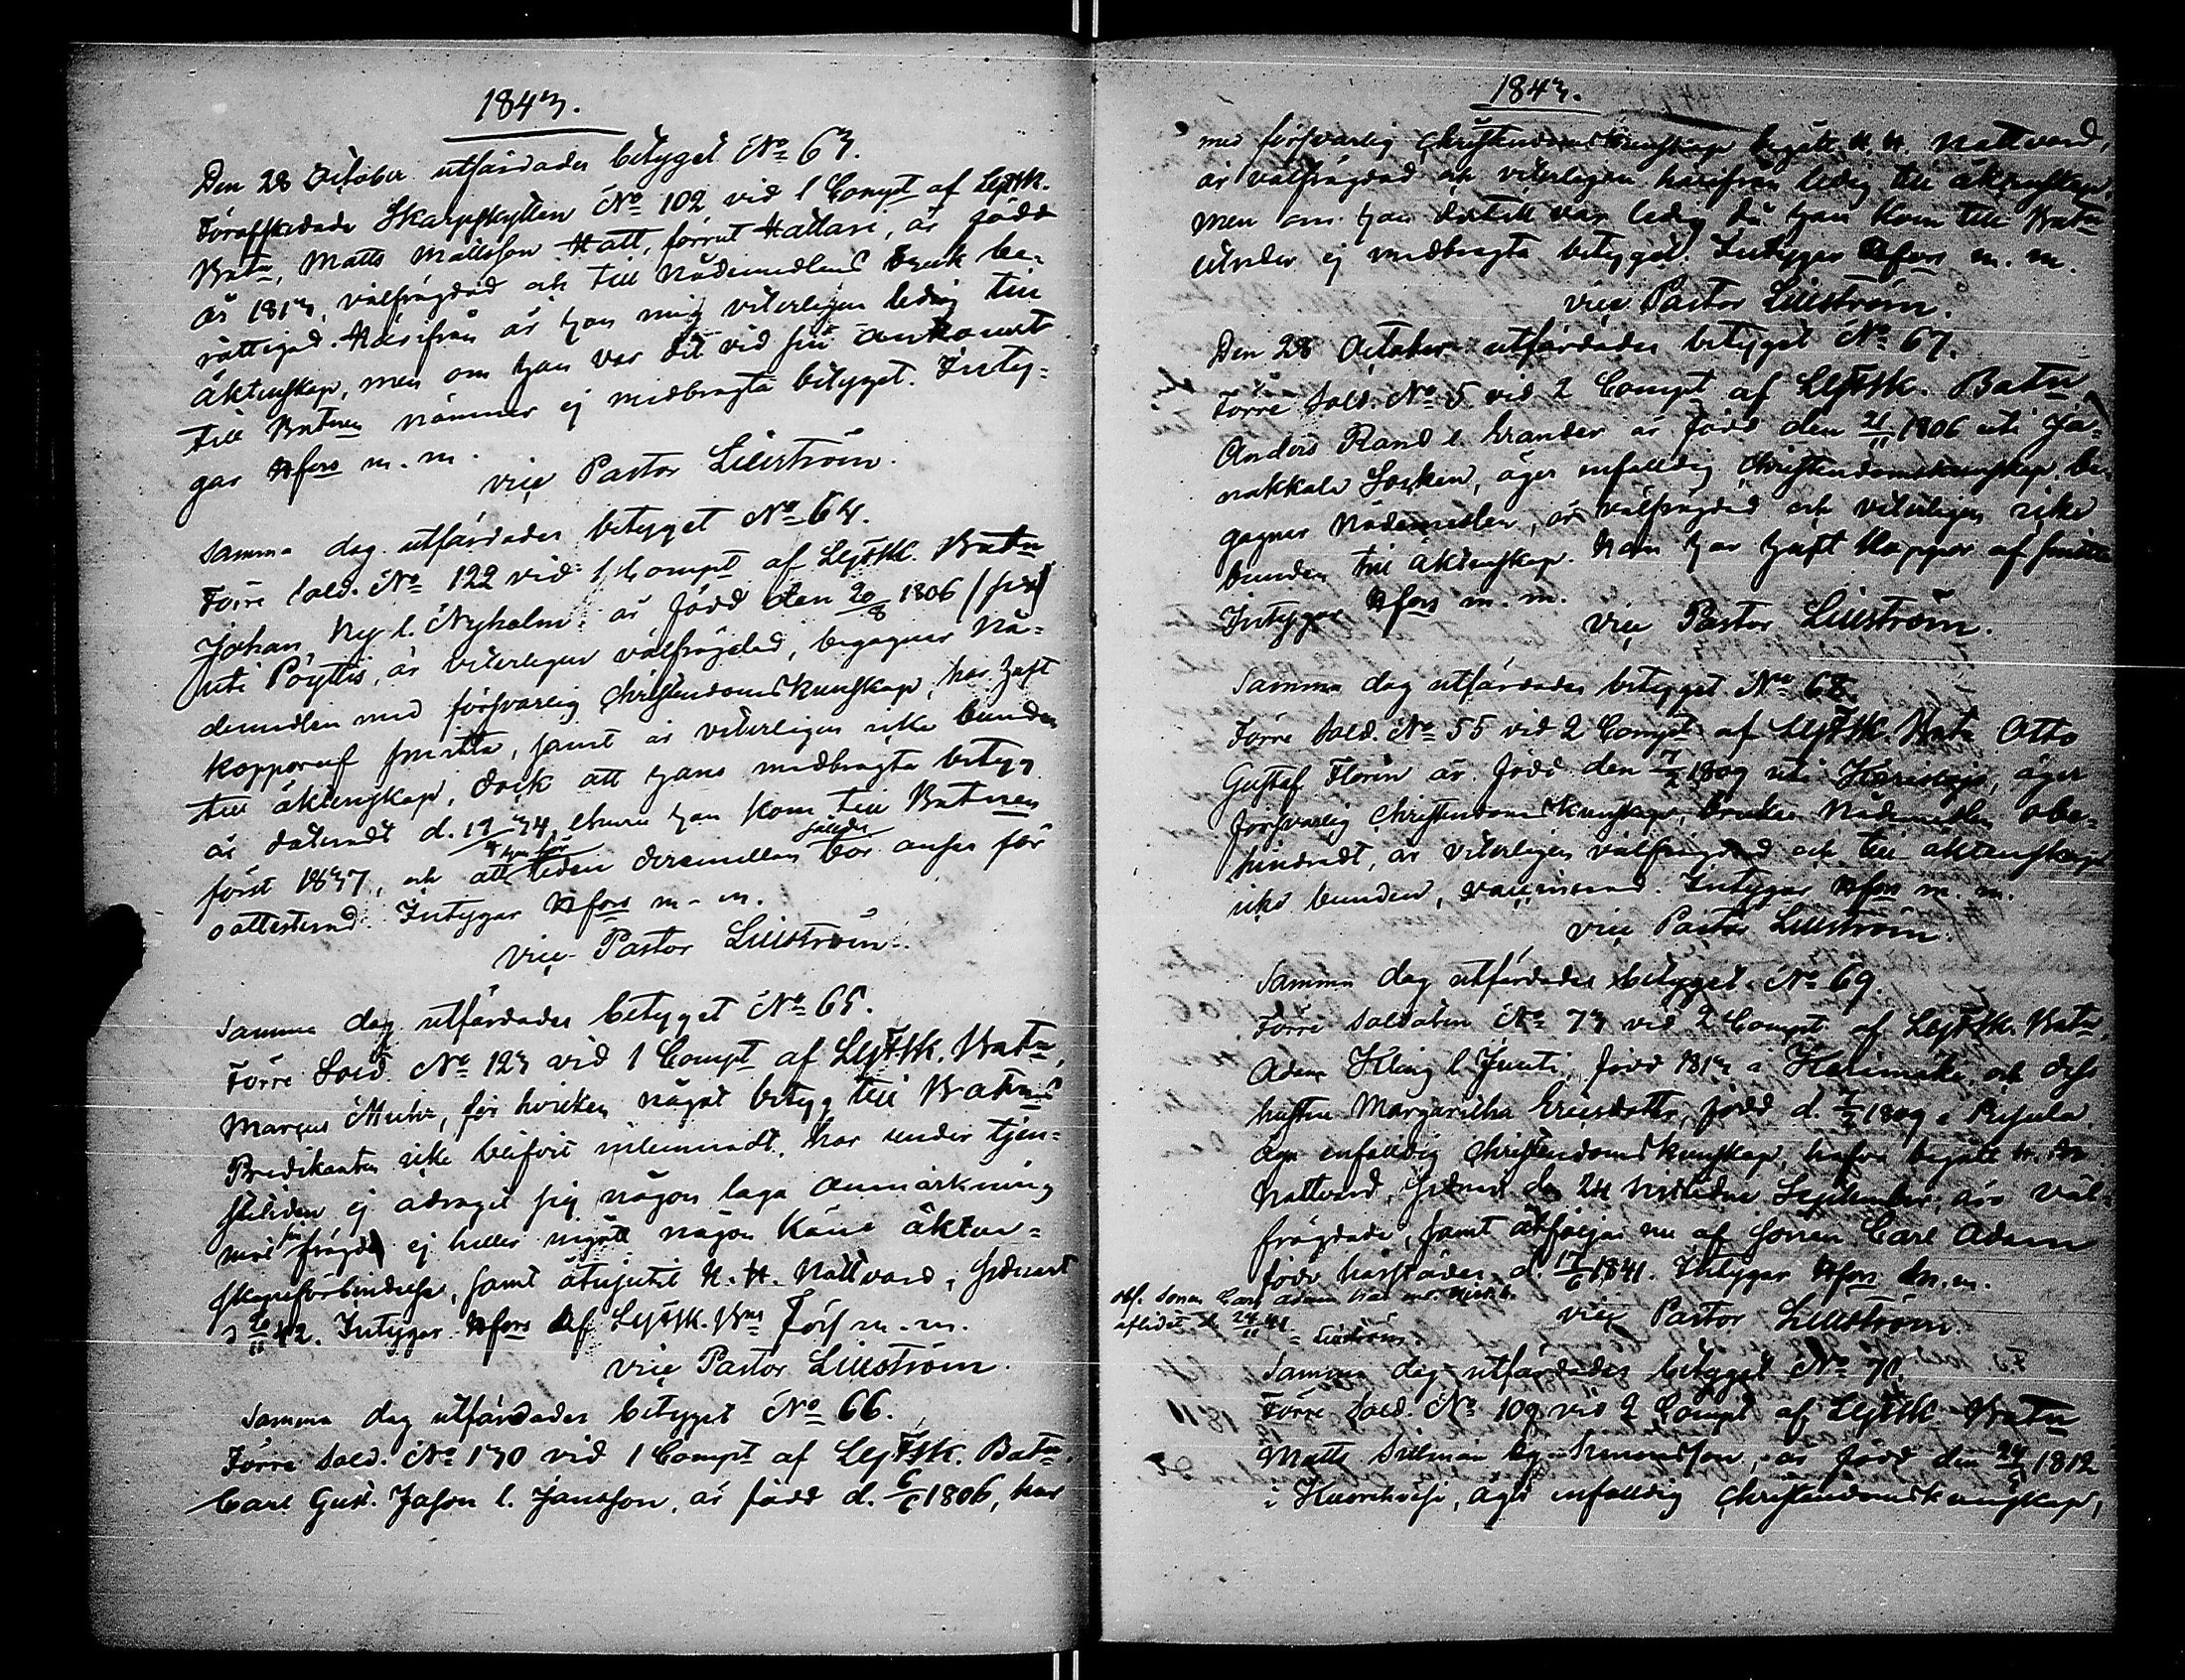 1843.
Den 28 October utfärdades betyget No 63.
Förafskedade Skarpskytten No 102 vid 1 Compt af LifFSk.
Batn, Matts Mattsson Hatt, förrut Hattari, är född
år 1813, välfrägdad och till Nådemedlens bruk be-
rättigad. Härifrån är han mig veterligen ledig till
äktenskap, men om han var det vid sin ankomst
till Batnen nämner ej medbragta betyget. Inty-
gar Hfors m. m.
vice Pastor Lillström.
Samma dag utfärdades betyget No 64.
Förre Sold. No 122 vid 1 Compt af LifFSk. Batn
Johan Ny l. Nyholm är född den 20/8 1806
uti Pöyttis, är veterligen välfrägdad, begagnar Nå-
demedlen med försvarlig Christendomskunskap, har haft
koppor af smitta, samt är veterligen icke bunden
till äktenskap, dock att hans medbragta betyg
är dateradt d. 19/4 34, ehuru han kom till Batnen
först 1837, och att tiden deremellan bör anses för
oattesterad. Intygar Hfors m. m.
vice Pastor Lillström.
Samma dag utfärdades betyget No 65.
Förre Sold. No 123 vid 1 Compt af LifFSk. Batn,
Marcus Muhr, för hvilken något betyg till Batns
Predikanten icke blifvit inlemnadt, har under tjen-
stetiden ej ådragit sig någon laga anmärkning
mot sin frägd, ej heller ingått någon känd äkten-
skapsförbindelse, samt åtnjutit H. H. Nattvard, sednast
d 20/11 42. Intygar Hfors af LifFSk. Bns Förs m. m.
vice Pastor Lillström.
Samma dag utfärdades betyget No 66.
Förre Sold. No 130 vid 1 Compt af LifFSk. Batn.
Carl Gust. Jason l. Jansson, är född d. 6/6 1806, har
1843.
med försvarlig Christendomskunskap begått H. H. Nattvard,
är välfrägdad och veterligen härifrån ledig till äktenskap,
men om han dertill var ledig då han kom till Batn
utreder ej medbragta betyget. Intygar Hfors m. m.
vice Pastor Lillström.
Den 28 October utfärdades betyget No 67.
Förre Sold. No 5 vid 2 Compt af LifFSk. Batn
Anders Rand l. Grander är född den 21/11 1806 uti Ja-
nakkala Socken, äger enfalldig Christendomskunskap, be-
gagnar Nådemedlen, är välfrägdad och veterligen icke
bunden till äktenskap. Han har haft koppor af smitta
Intygar Hfors m. m.
vice Pastor Lillström.
Samma dag utfärdades betyget No 68.
Förre Sold. No 55 vid 2 Compt af LifFSk. Batn Otto
Gustaf Florin är född den 7/2 1809 uti Karislojo, äger
försvarlig Christendomskunskap, brukar Nådemedlen obe-
hindradt, är veterligen välfrägdad och till äktenskap
icke bunden, vaccinerad. Intygar Hfors m. m.
vice Pastor Lillström.
Samma dag utfärdades betyget No 69.
Förre Soldaten No 73 vid 2 Compt af LifFSk. Batn
Adam Kling l. Junti, född 1813 i Kerimäki, och dess
hustru Margaretha Ericsdotter, född d. 1809 i
äga enfalldig Christendomskunskap, hafva begått H. H.
Nattvard sednast den 24 sistledne September, äro väl-
frägdade, samt åtföljas nu af sonen Carl Adam
född härstädes d. 17/6 1841. Intygar Hfors m. m.
Obs. Sonen Carl Adam har
aflidit d. 24/11 41 Lillström.
vice Pastor Lillström.
Samma dag utfärdades betyget No 70.
Förre Sold. No 109 vid 2 Compt af LifFSk. Batn
Matts Sillman Simonsson, är född den 24/ 1812
i Kuorehvesi, äger enfalldig Christendomskunskap,